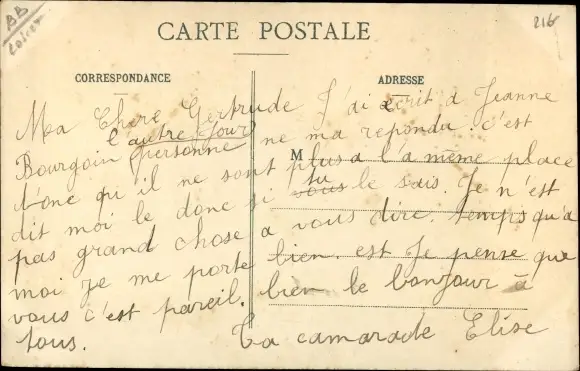 BB
Loiret
216
CARTE POSTALE
CORRESPONDANCE
ADRESSE
Ma Chere Gertrude J'ai écrit a Jeanne
l'autre jour
Bourgoin personne ne ma repondu. c'est
M
donc qu'il ne sont plus a l'a même place
dit moi le donc si vous tu le sais. Je n'est
pas grand chose a vous dire. temps qu'a
moi je me porte bien. est Je pense que
vous c'est pareil. bien le bonjour à
tous.
Ta camarade Elise